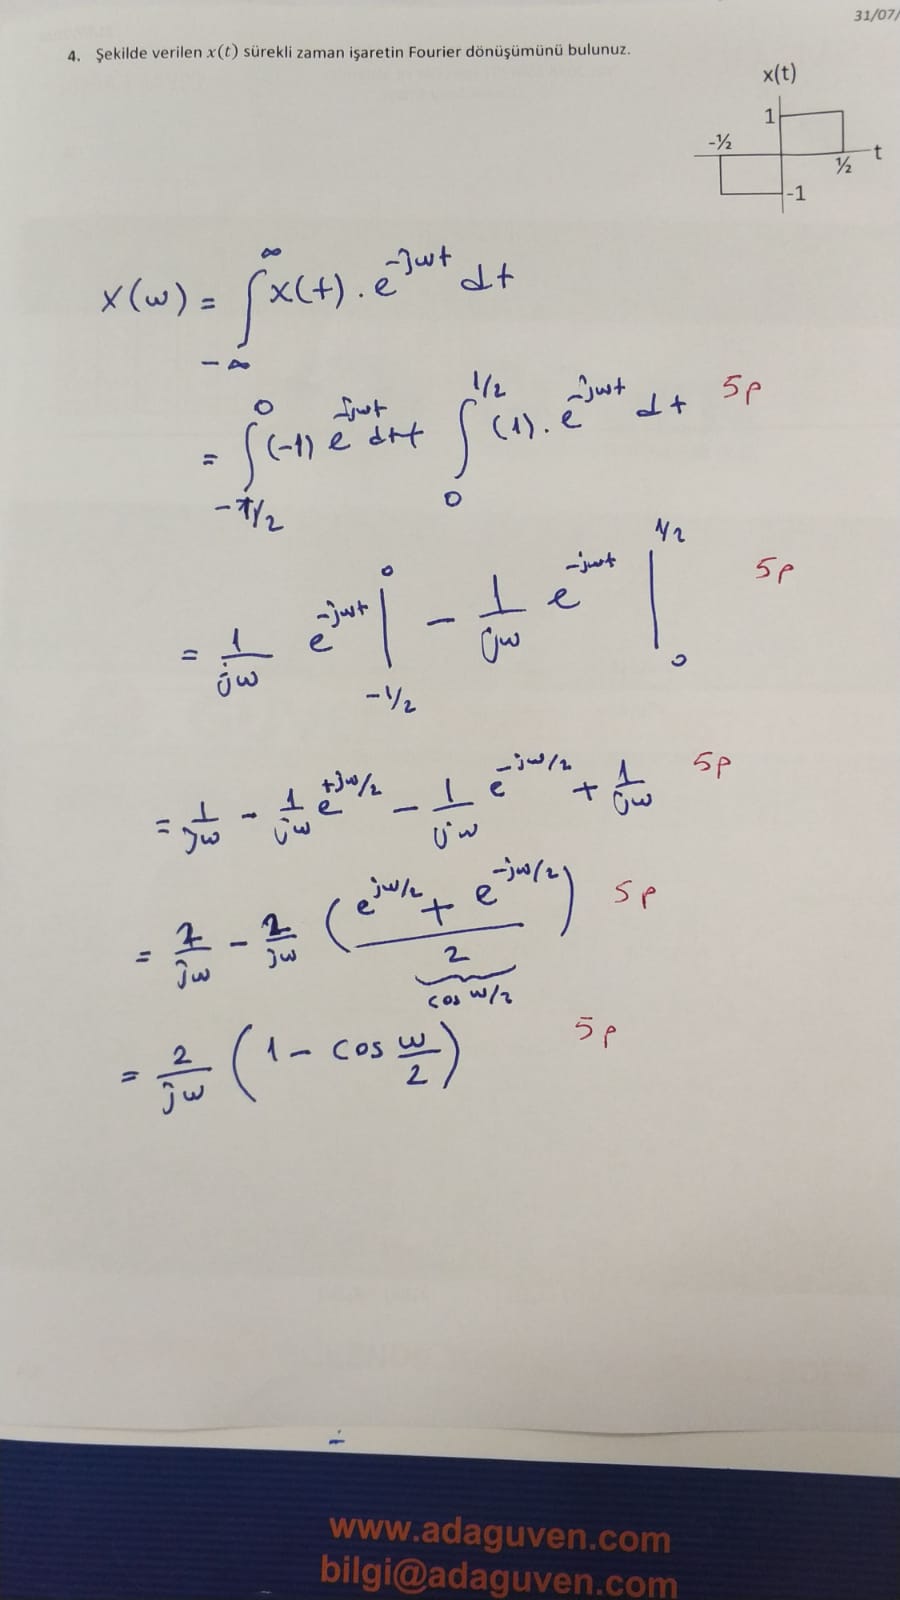 31/07/
4. Şekilde verilen x(t) sürekli zaman işaretin Fourier dönüşümünü bulunuz.
x(t)
1
-½
t
½
-1
X(w) = ∫_{-∞}^{∞} x(t) . e^{-jwt} dt
= ∫_{-π/2}^{0} (-1) e^{-jwt} dt + ∫_{0}^{1/2} (1) . e^{-jwt} dt 5p
= 1/jw e^{-jwt} |_{-1/2}^{0} - 1/jw e^{-jwt} |_{0}^{1/2} 5p
= 1/jw - 1/jw e^{+jw/2} - 1/jw e^{-jw/2} + 1/jw 5p
= 2/jw - 2/jw ( (e^{jw/2} + e^{-jw/2}) / 2 ) 5p
cos w/2
= 2/jw (1 - cos w/2) 5p
www.adaguven.com
bilgi@adaguven.com